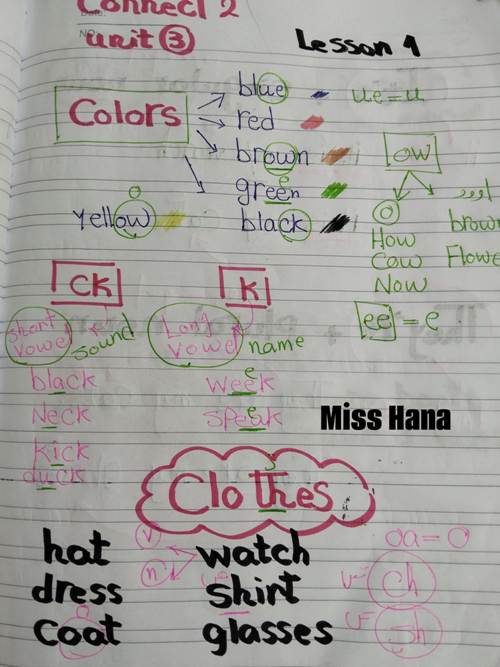 Connect 2
unit 3
Lesson 1
Colors
blue
ue = u
red
brown
ow
green
e
o
yellow
black
o
اوو
How
brown
Cow
Flowe
Now
ck
k
short vowel
sound
Long vowel
name
ee = e
black
week
e
Neck
speak
e
kick
duck
Miss Hana
Clothes
hat
watch
oa = o
ch
dress
shirt
coat
glasses
sh